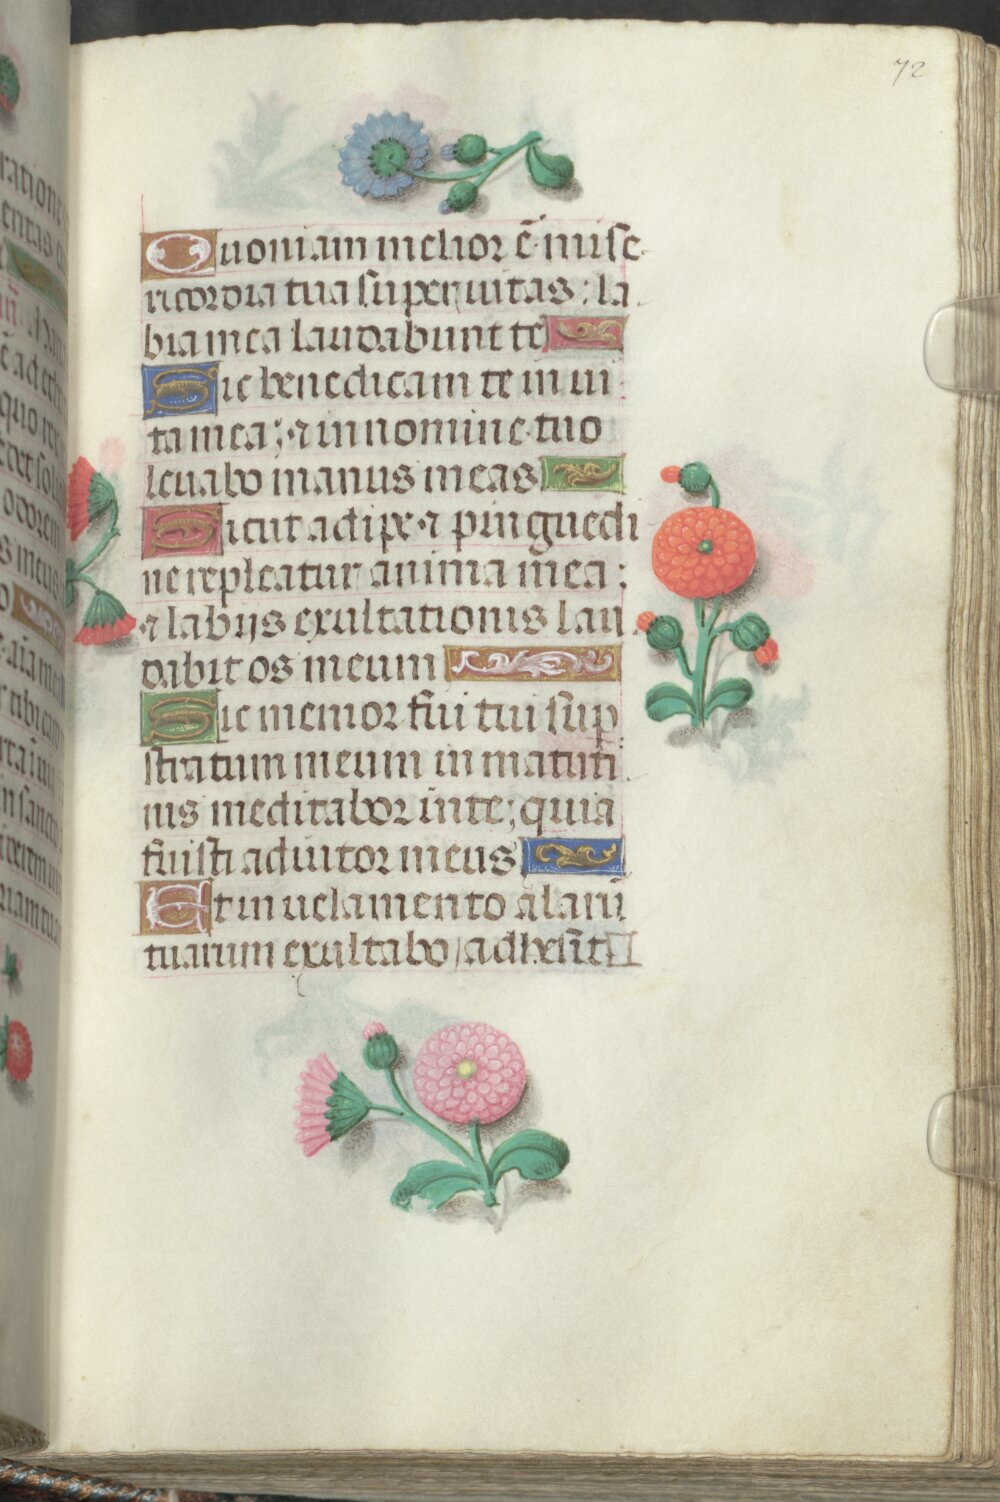 72
Quoniam melior ē mise
ricordia tua super uitas: la
bia mea laudabunt te
Sic benedicam te in ui
ta mea; ⁊ in nomine tuo
leuabo manus meas
Sicut adipe ⁊ pinguedi
ne repleatur anima mea:
⁊ labijs exultationis lau
dabit os meum
Sic memor fui tui sup
stratum meum in matuti
nis meditabor in te; quia
fuisti adiutor meus
Et in uelamento alarū
tuarum exultabo, adhesit